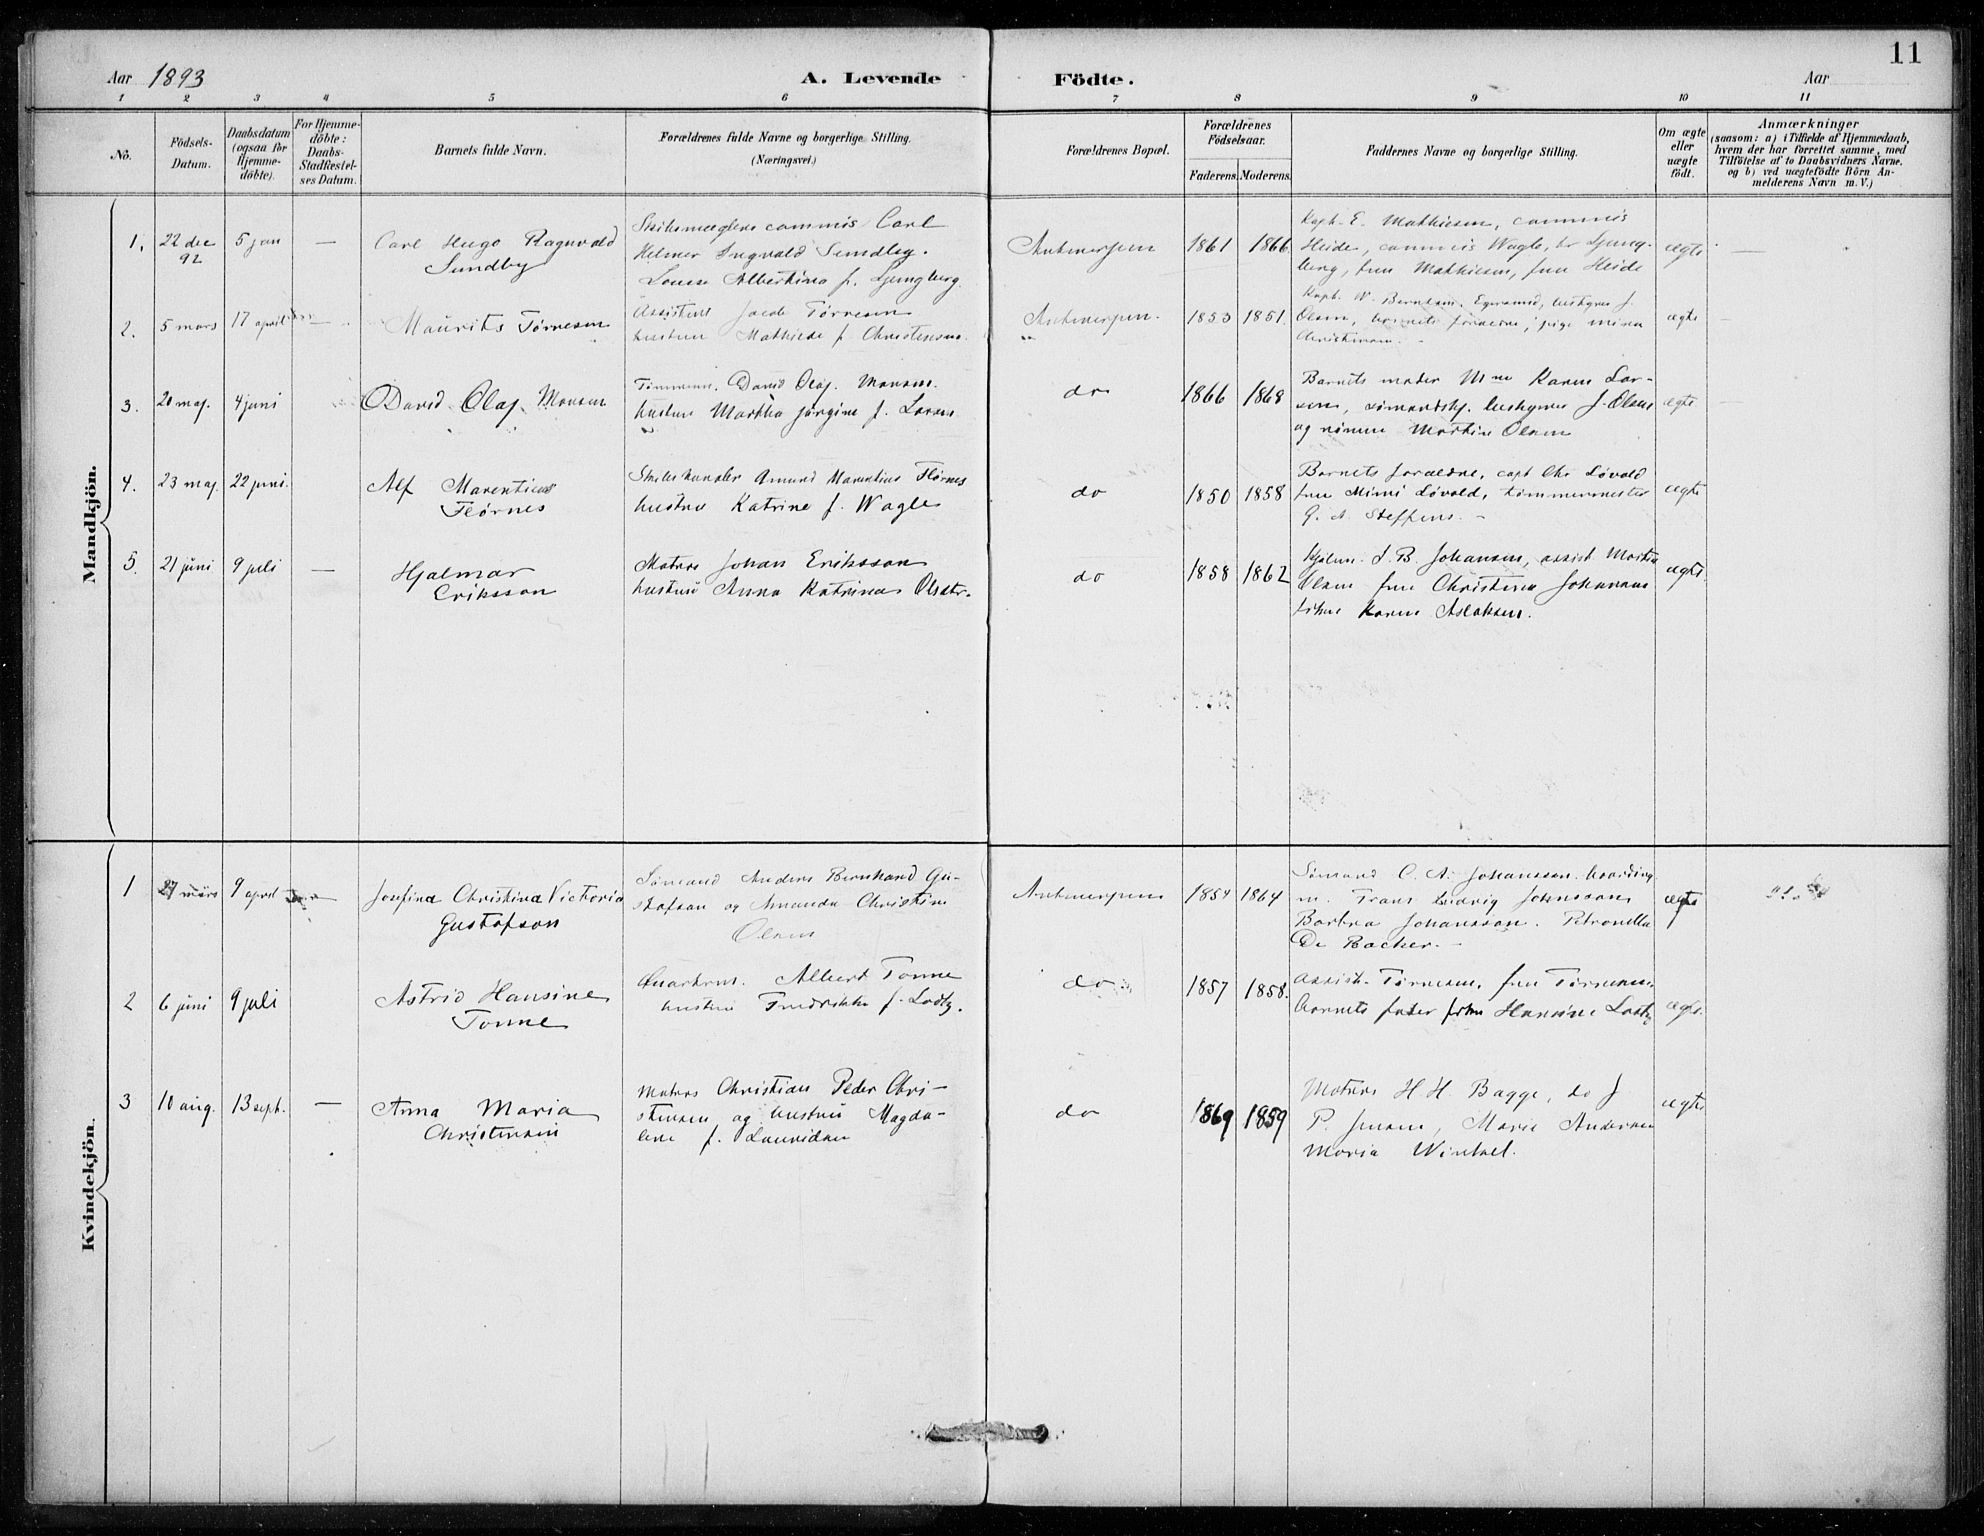 11
Aar 1893
A. Levende Födte.
Aar
1 2 3 4 5 6 7 8 9 10 11
No.
Födsels-
Datum.
Daabsdatum
(ogsaa for
Hjemme-
döbte).
For Hjemme-
döbte:
Daabs-
Stadfæstel-
ses Datum.
Barnets fulde Navn.
Forældrenes fulde Navne og borgerlige Stilling.
(Næringsvei.)
Forældrenes Bopæl.
Forældrenes
Födselsaar.
Faderens. Moderens.
Faddernes Navne og borgerlige Stilling.
Om ægte
eller
uægte
født.
Anmærkninger
(saasom: a) i Tilfælde af Hjemmedaab,
hvem der har forrettet samme, med
Tilföielse af to Daabsvidners Navne,
og b) ved uægtefödte Börn An-
melderens Navn m. V.)
Mandkjön.
1. 22 dec 92
5 jan
—
Carl Hugo Ragnvald
Sundby
Skibsmæglere commis Carl
Helmer Ingvald Sundby.
Louise Albertina f. Ljungberg.
Antwerpen
1861 1866
Kapt. E. Mathiesen, commis
Heide, commis Wagle, hr Ljung-
berg, fru Mathiesen, fru Heide
ægte
—
2. 5 mars
17 april
—
Maurits Tørnesen
Assistent Jacob Tørnesen
hustru Mathilde f Christensen.
Antwerpen.
1853 1851.
Kapt. W. Berntsen, Egersund, bestyrer J.
Olsen, barnets forældre, pige Mina
Christensen.
ægte
—
3. 20 maj.
4 juni
David Olaf Monsen
Tømmerm. David Olaf Monsen.
hustru Martha Jørgine f. Larsen
do
1866 1868
Barnets moder Mme Karen Lar-
sen, sømandshj. bestyrer J. Olsen
og Martin Olsen
ægte
—
4. 23 maj.
22 juni.
Alf Marentius
Flørnes
Skibshandler Amund Marentius Flørnes
hustru Katrine f. Wagle
do
1850 1858
Barnets forældre, capt Chr Løvold
fru Mimi Løvold, tømmermester
G. A. Steffens. -
ægte
5. 21 juni
9 juli
—
Hjalmar
Eriksson
Matros Johan Eriksson
hustru Anna Katrina
do
1858 1862
J. B. Johansen, assist Martin
Olsen fru Christina Johansen
frkn Karen Aslaksen.
ægte
Kvindekjön.
1 27 mars
9 april
Josefina Christina Victoria
Gustafson
Sømand Anders Bernhard Gu-
stafson og Amanda Christine
Olsen
Antwerpen
1854 1864
Sømand C. A. Johansson. boarding
m. Frans Ludvig Johnsson
Barbra Johansson. Petronella
De Backer. -
ægte
2 6 juni
9 juli
Astrid Hansine
Tonne
Quarterm. Albert Tonne
hustru Fredrikke f. Lodtz.
do
1857 1858.
Assist. Tørnesen, fru Tørnesen
barnets fader frkn Hansine Lodtz
ægte.
3 10 aug.
13 sept.
—
Anna Maria
Christensen
Matros Christian Peder Chri-
stensen og hustru Magda-
lene f. Lauridsen
do
1869 1859
Matros H. H. Bagge, do J
P. Jensen, Marie Andersen
Maria Winkel.
ægte